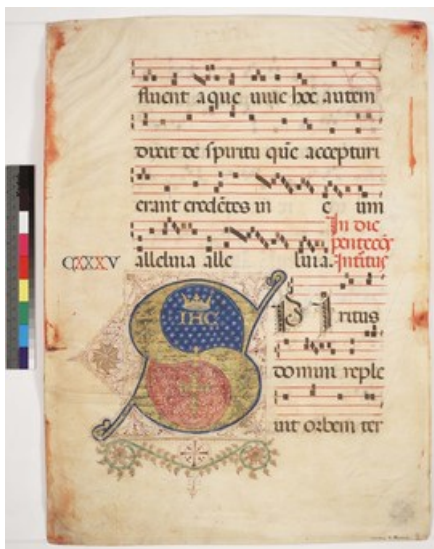 fluent aque uiue hoc autem
dixit de spiritu quē accepturi
erant credētes in e um
In die
pentecꝭ
CXXXV alleluia alle luia. Introitus
IHC
S P I ritus
domini reple
uit orbem ter